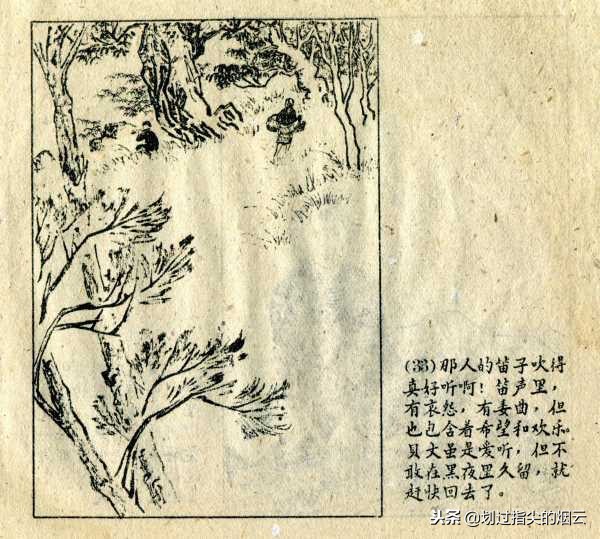 (33)那人的笛子吹得
真好听啊！笛声里，
有哀怨，有委曲，但
也包含着希望和欢乐。
贝大虽是爱听，但不
敢在黑夜里久留，就
赶快回去了。
头条 @划过指尖的烟云